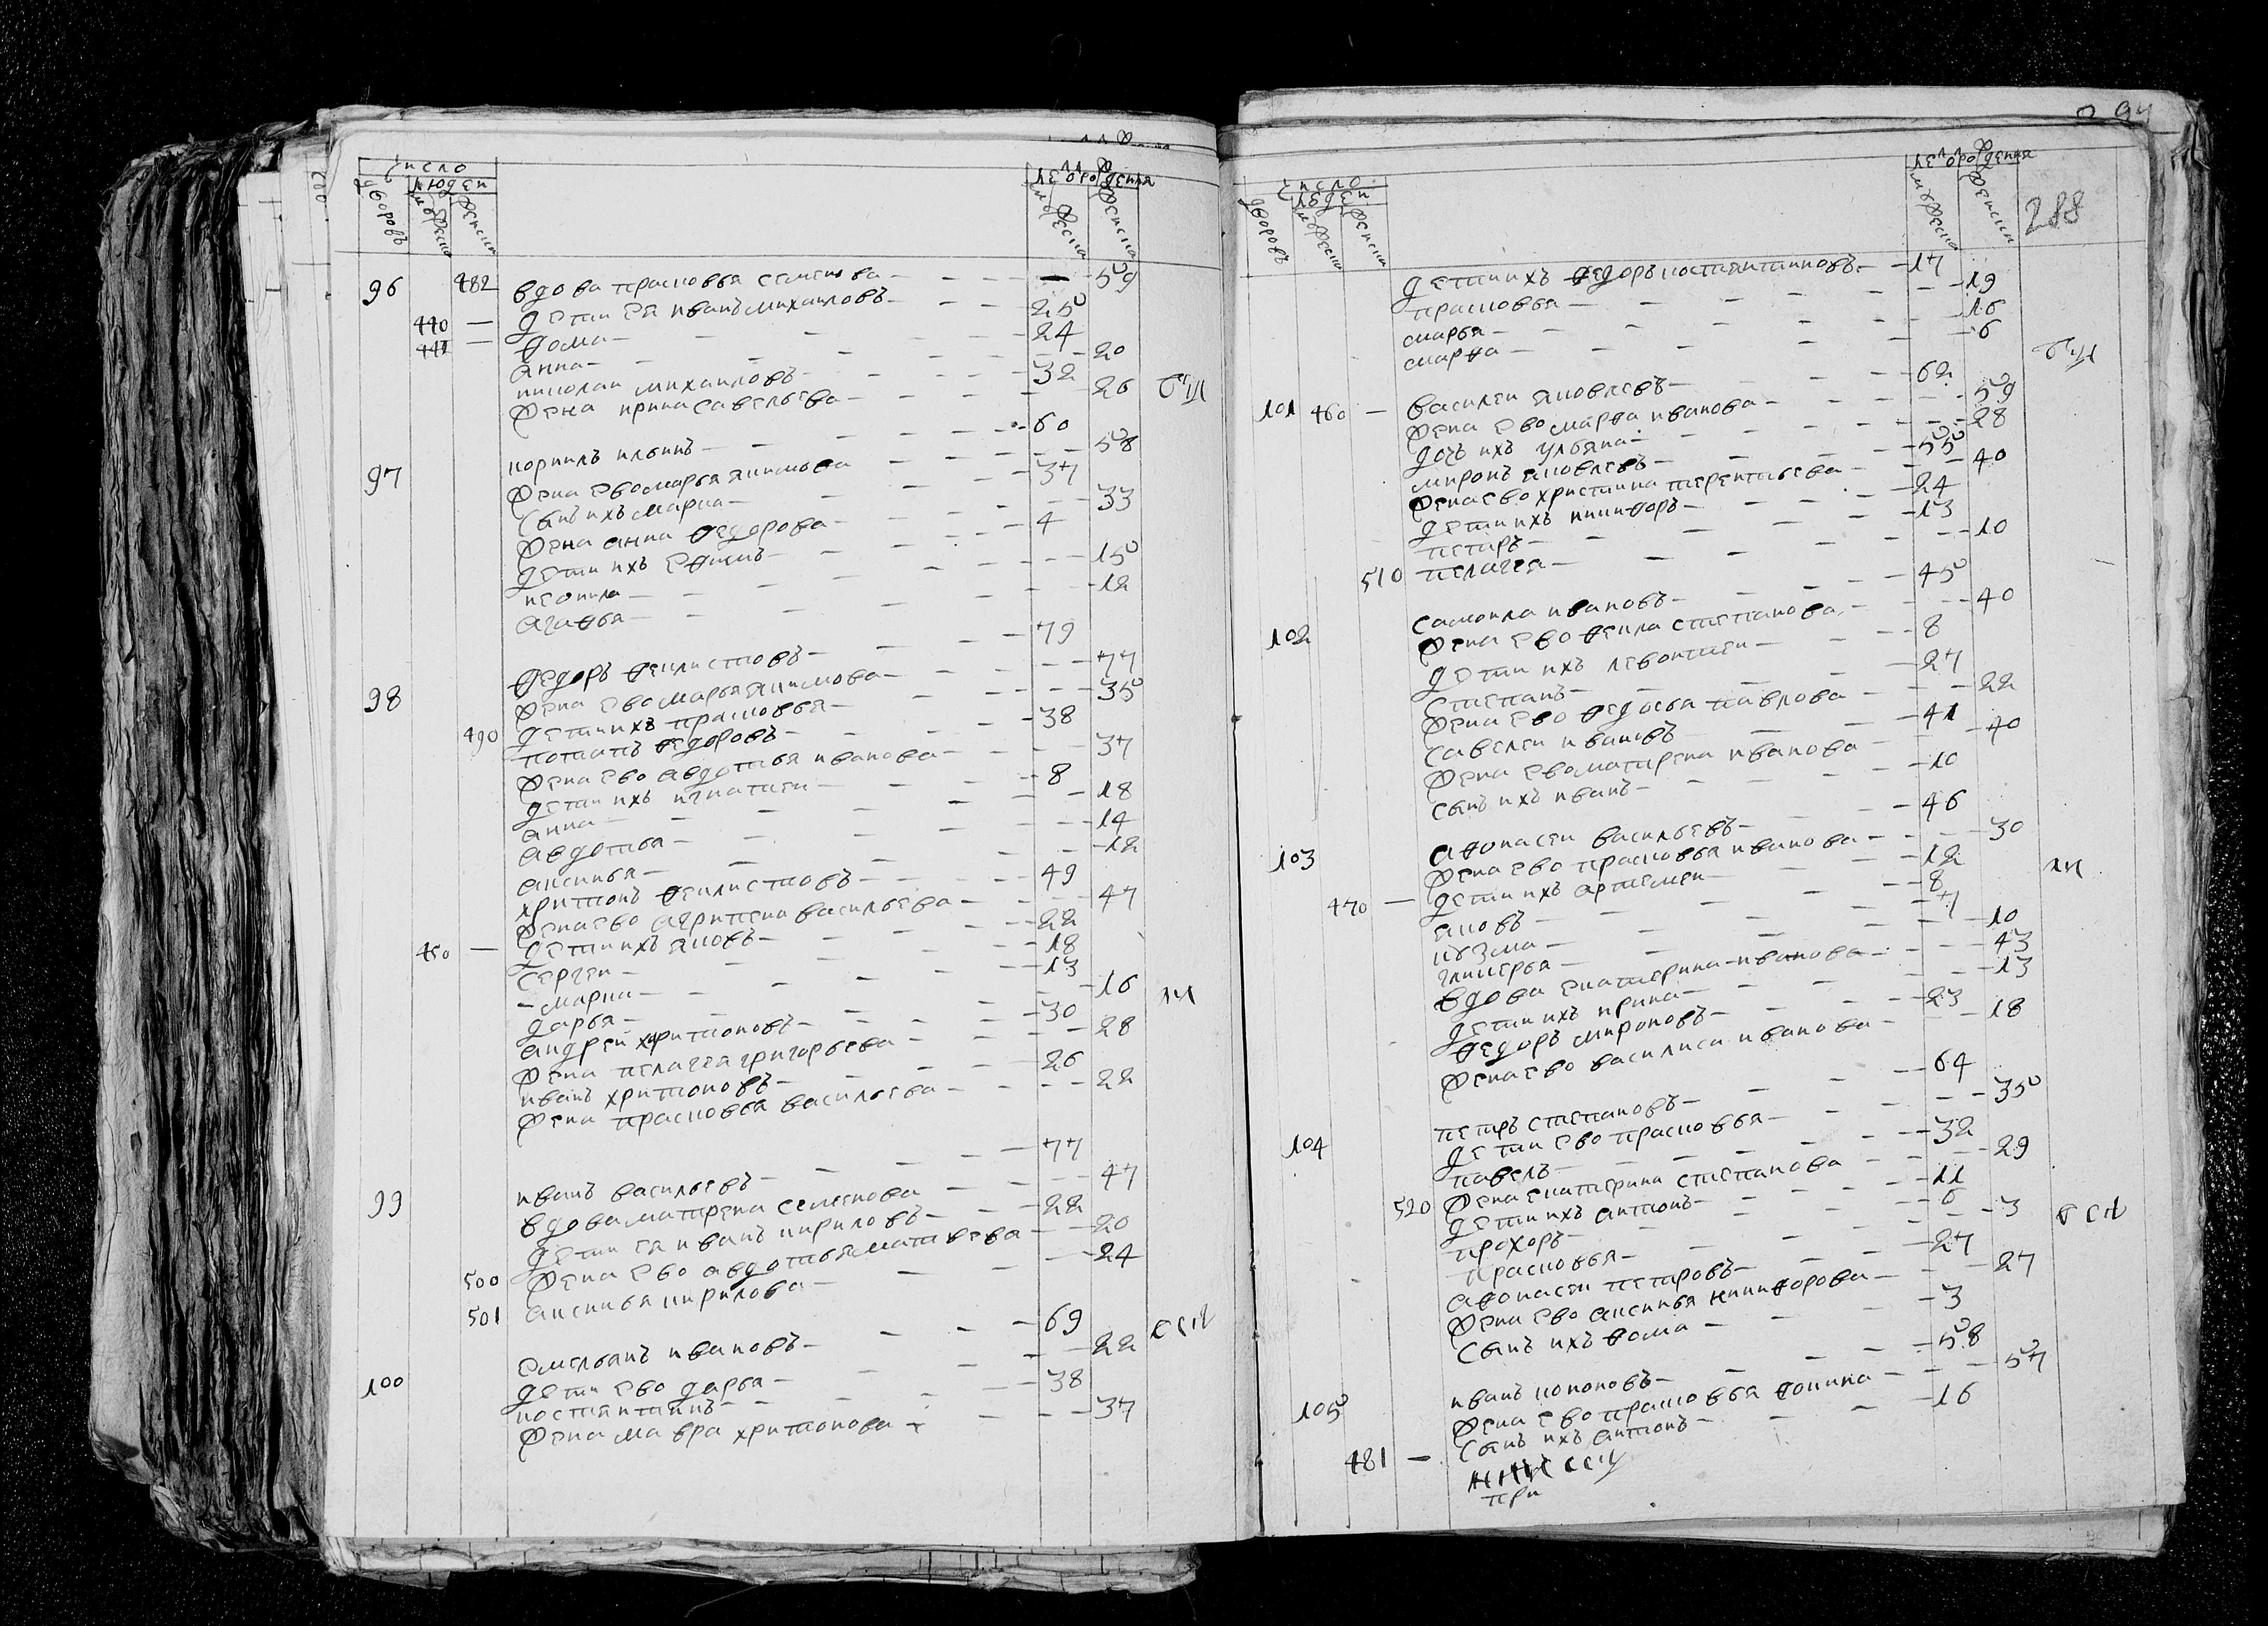 число
людеи
дворовъ мужеска женска
лета рождения
мужеска женска
96 482 вдова прасковья семенова 59
440 дети ея иванъ михаиловъ 25
441 фома 24
анна 20
николаи михаиловъ 32
жена ирина савельева 26
97 корнилъ ильинъ 60
жена ево марья якимова 58
сынъ ихъ марка 37
жена анна федорова 33
дети ихъ ефимъ 4
неонила 15
агафья 12
98 федоръ феклистовъ 79
жена ево марья якимова 77
490 дети ихъ прасковья 35
потапъ федоровъ 38
жена ево авдотья иванова 37
дети ихъ игнатеи 8
анна 18
авдотья 14
аксинья 12
харитонъ феклистовъ 49
жена ево агрипена васильева 47
450 дети ихъ яковъ 22
сергеи 18
марка 13
дарья 16
андреи харитоновъ 30
жена пелагея григорьева 28
иванъ харитоновъ 26
жена прасковея васильева 22
99 иванъ васильевъ 77
вдова матрена семенова 47
дети ея иванъ кириловъ 22
500 жена ево авдотья матвеева 20
501 аксинья кирилова 24
100 емельянъ ивановъ 69
дети ево дарья 22
костянтинъ 38
жена мавра харитонова 37
294
288
число
людеи
дворовъ мужеска женска
лета рождения
мужеска женска
дети ихъ федоръ костянтиновъ 17
прасковья 19
марья 16
марфа 6
101 460 василеи яковлевъ 62
жена ево марфа иванова 59
дочь ихъ ульяна 28
миронъ яковлевъ 55
жена ево христина терентьева 40
дети ихъ никифоръ 24
петръ 13
510 пелагея 10
102 самоила ивановъ 45
жена ево фекла степанова 40
дети ихъ левонтеи 8
степанъ 27
жена ево федосья павлова 22
савелеи ивановъ 41
жена ево матрена иванова 40
сынъ ихъ иванъ 10
103 афонасеи васильевъ 46
жена ево прасковья иванова 30
470 дети ихъ артемеи 12
яковъ 8
кузма 7
гликерья 10
вдова екатерина иванова 43
дети ихъ ирина 13
федоръ мироновъ 23
жена ево василиса иванова 18
104 петръ степановъ 64
дети ево прасковья 35
павелъ 32
520 жена екатерина степанова 29
дети ихъ антонъ 11
прохоръ 6
прасковья 3
афонасеи петровъ 27
жена ево аксинья никифорова 27
сынъ ихъ фома 3
105 иванъ кононовъ 58
жена ево прасковья фокина 57
481 сынъ ихъ антонъ 16
при